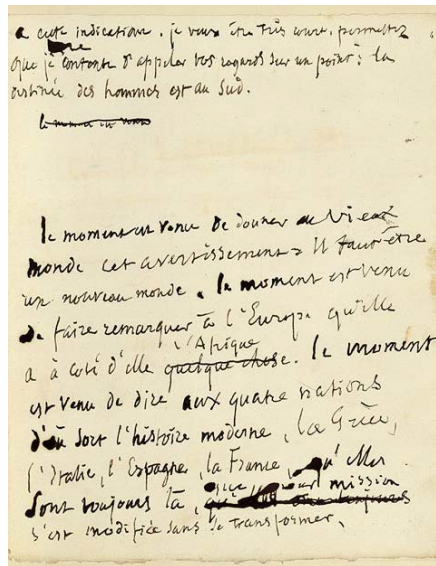 a cette indication. je veux être très court. permettez
que je me contente d'appeler vos regards sur un point : la
destinée des hommes est au Sud.
le moment est venu
le moment est venu de donner au vieux
monde cet avertissement : Il faut être
un nouveau monde. le moment est venu
de faire remarquer à l'Europe qu'elle
l'Afrique
a à côté d'elle quelque chose. le moment
est venu de dire aux quatre nations
d'où sort l'histoire moderne, la Grèce,
l'Italie, l'Espagne, la France, qu'elles
sont toujours là, que leur mission
s'est modifiée sans se transformer,